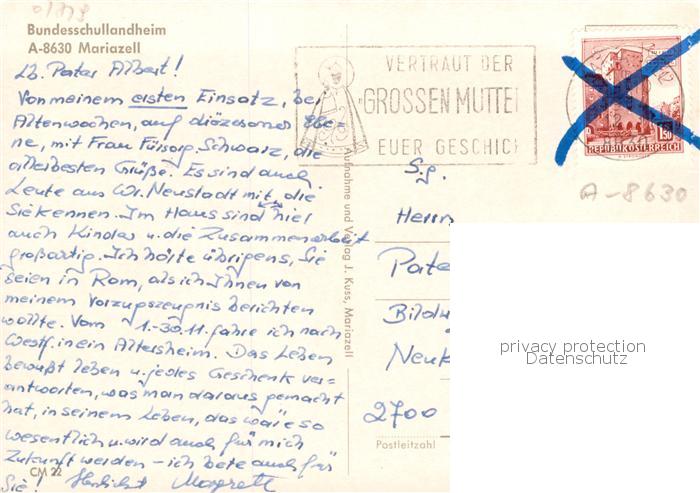 Bundesschullandheim
A-8630 Mariazell
Lb. Pater Albert!
Von meinem ersten Einsatz, bei
Altenwochen, auf diözesaner Ebe-
ne, mit Frau Fürsorg. Schwarz, die
allerbesten Grüße. Es sind auch
Leute aus Wr. Neustadt mit, die
Sie kennen. Im Haus sind hier
auch Kinder u. die Zusammenarbeit
großartig. Ich hörte übrigens, Sie
seien in Rom, als ich Ihnen von
meinem Vorzugszeugnis berichten
wollte. Vom 1.-30.11. fahre ich nach
Westf. in ein Altersheim. Das Leben
bewußt leben u. jedes Geschenk ver-
antworten, was man daraus gemacht
hat, in seinem Leben, das wäre so
wesentlich u. wird auch für mich
Zukunft werden – ich bete auch für
Sie! Herzlichst Margreth
CM 22
Aufnahme und Verlag J. Kuss, Mariazell
VERTRAUT DER
GROSSEN MUTTE
EUER GESCHIC
1.50
REPUBLIK ÖSTERREICH
A-8630
S.g.
Herrn
Pate
Bildu
Neuk
2700
Postleitzahl
privacy protection
Datenschutz